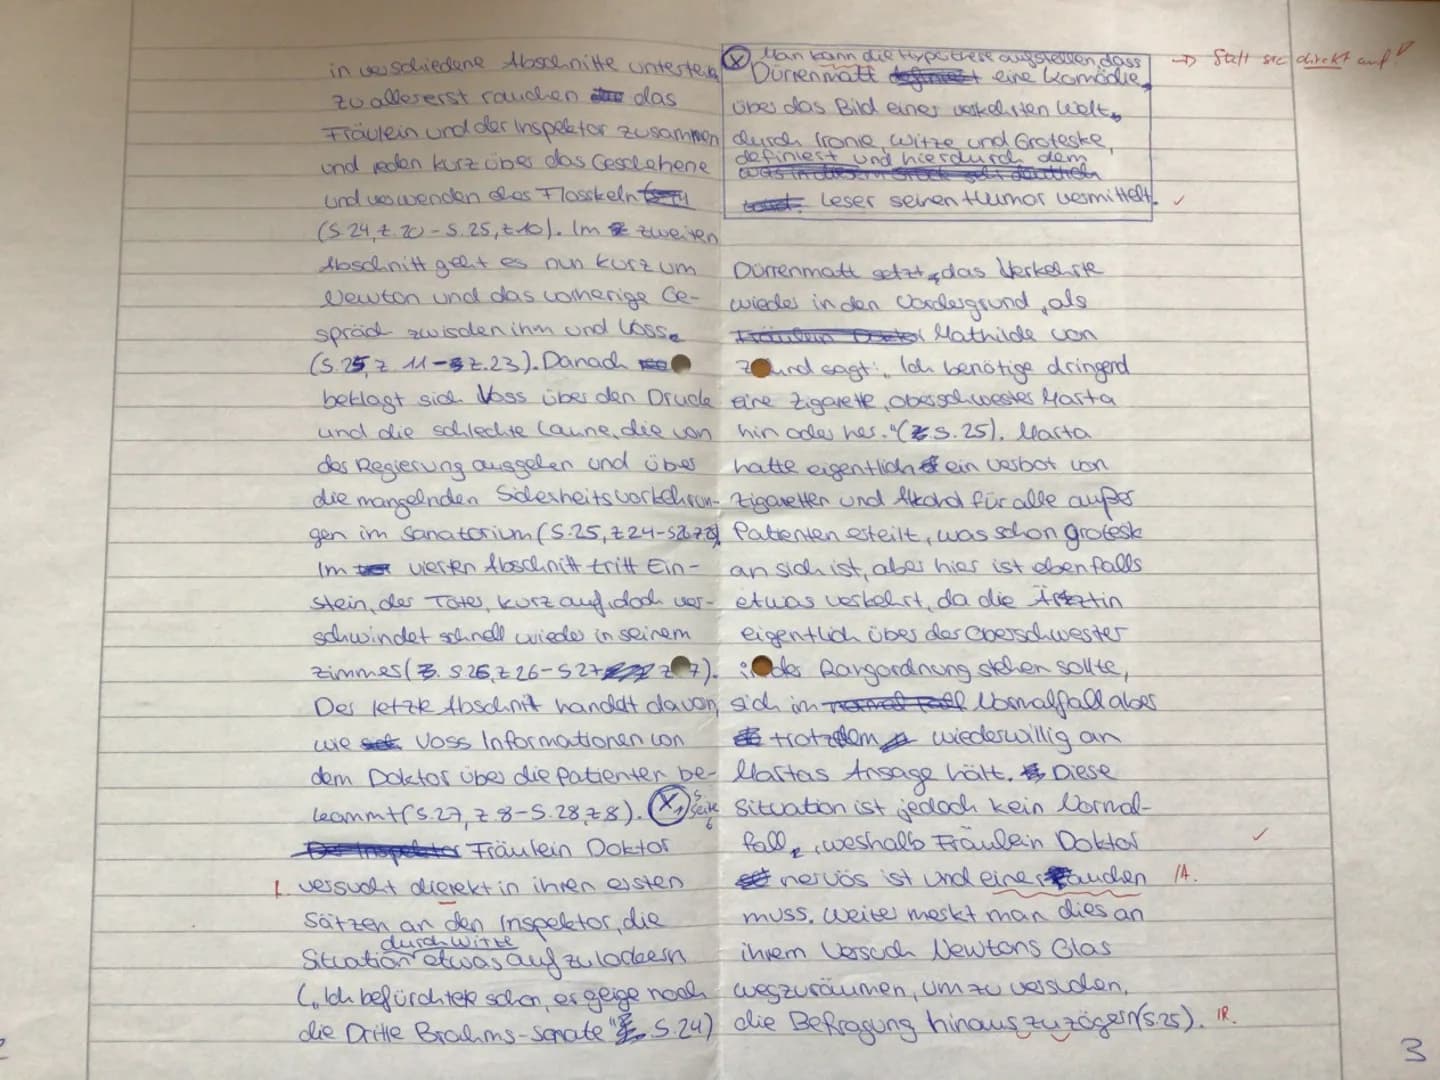 in verschiedene Abschnitte unterteilt
zu allererst rauchen das
Fräulein und der Inspektor zusammen
und reden kurz über das Geschehene
und verwenden Flosskeln
(S.24, Z.20-S.25, Z10). Im zweiten
Abschnitt geht es nun kurz um
Newton und das vorherige Ge-
spräch zwischen ihm und Voss.
(S.25, Z 11- Z.23). Danach
beklagt sich Voss über den Druck
und die schlechte Laune, die von
der Regierung ausgehen und über
die mangelnden Sicherheitsvorkehrun-
gen im Sanatorium (S.25, Z24-
Im vierten Abschnitt tritt Ein-
stein, der Täter, kurz auf, doch ver-
schwindet schnell wieder in seinem
Zimmer( S 26, Z 26-S 27 Z 7).
Der letzte Abschnit handelt davon,
wie Voss Informationen von
dem Doktor über die Patienten be-
kommt(S.27, Z.8-S.28, Z8). X1 s. Seite 6
Fräulein Doktor
versucht dierekt in ihren ersten
Sätzen an den Inspektor, die
durch Witze
Situation etwas aufzulockern
(„Ich befürchtete schon, er geige noch
die Dritte Brahms-Sonate" S.24)
X Man kann die Hypothese aufstellen, dass
Dürrenmatt eine Komödie
über das Bild einer verkehrten Welt,
durch Ironie, Witze und Groteske,
definiert und hierdurch dem
Leser seinen Humor vermittelt.
→ Stell sie direkt auf!
Dürrenmatt setzt das Verkehrte
wieder in den Vordergrund, als
Mathilde von
Zahnd sagt: „Ich benötige dringend
eine Zigarette, Oberschwester Marta
hin oder her."( S.25). Marta
hatte eigentlich ein Verbot von
Zigaretten und Alkohol für alle außer
Patienten erteilt, was schon grotesk
an sich ist, aber hier ist ebenfalls
etwas verkehrt, da die Ärztin
eigentlich über der Oberschwester
in der Rangordnung stehen sollte,
sich im Normalfall aber
trotzdem wiederwillig an
Martas Ansage hält. Diese
Situation ist jedoch kein Normal-
fall, weshalb Fräulein Doktor
nervös ist und eine rauchen
muss. Weiter merkt man dies an
ihrem Versuch Newtons Glas
wegzuräumen, um zu versuchen,
die Befragung hinaus zu zögern(S.25).
A.
R.
3